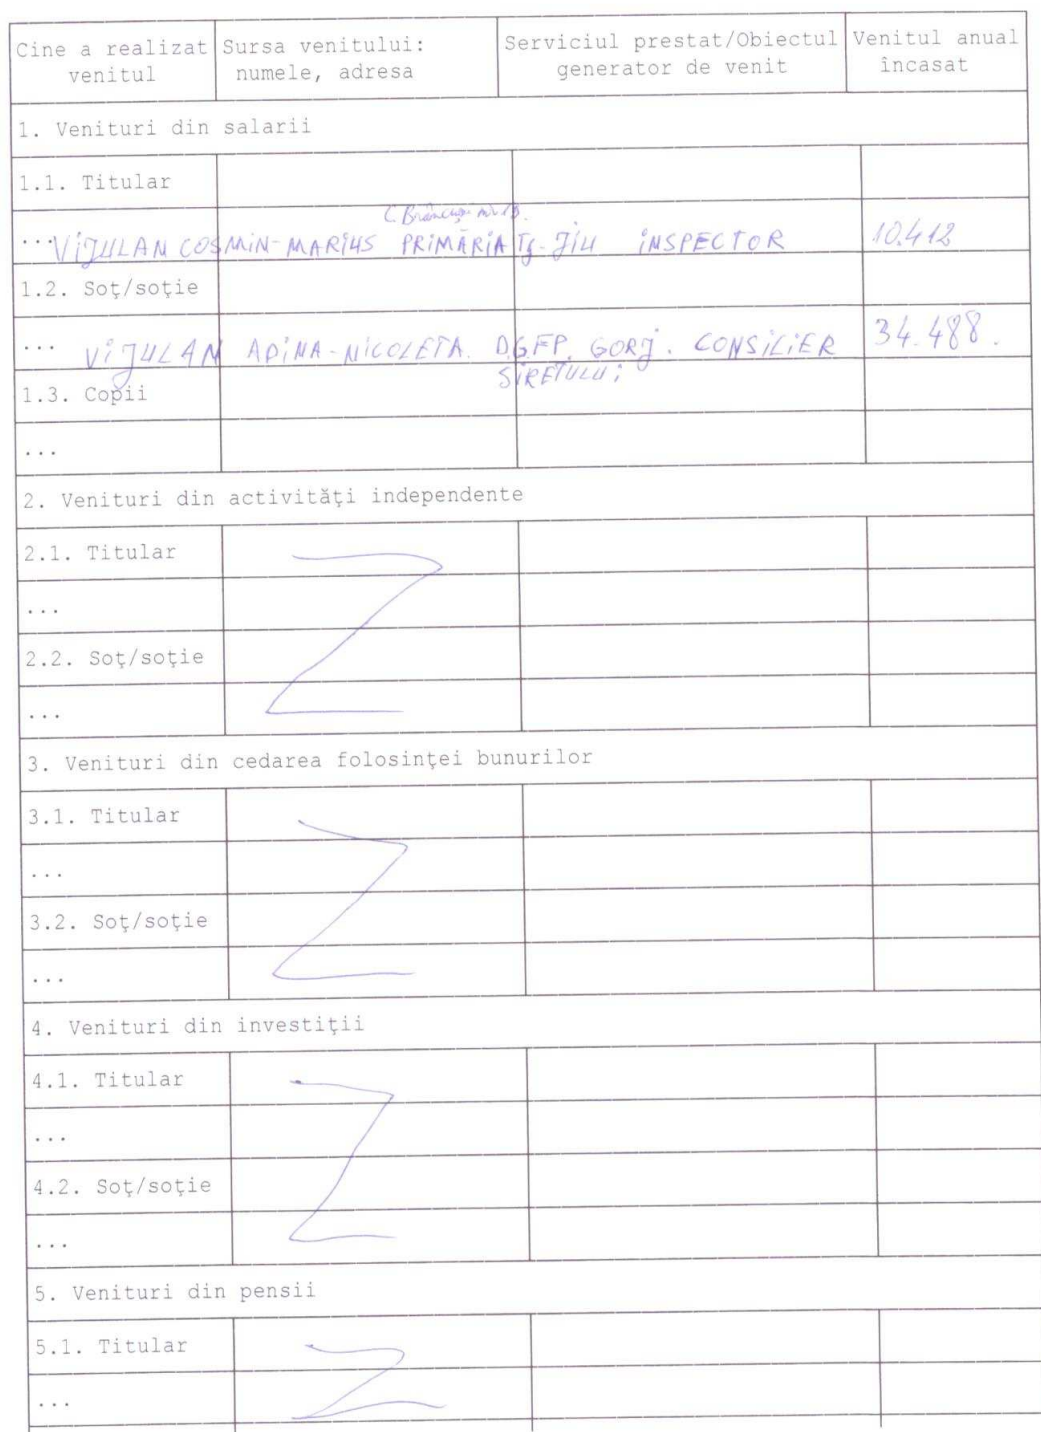 Cine a realizat venitul Sursa venitului: numele, adresa Serviciul prestat/Obiectul generator de venit Venitul anual încasat
1. Venituri din salarii
1.1. Titular
C. Brâncuși
... VIJULAN COSMIN-MARIUS PRIMĂRIA Tg-Jiu INSPECTOR 10.412
1.2. Soţ/soţie
... VIJULAN ADINA-NICOLETA. D.G.F.P. GORJ. CONSILIER 34.488.
SIRETULUI
1.3. Copii
...
2. Venituri din activităţi independente
2.1. Titular
...
2.2. Soţ/soţie
...
3. Venituri din cedarea folosinţei bunurilor
3.1. Titular
...
3.2. Soţ/soţie
...
4. Venituri din investiţii
4.1. Titular
...
4.2. Soţ/soţie
...
5. Venituri din pensii
5.1. Titular
...